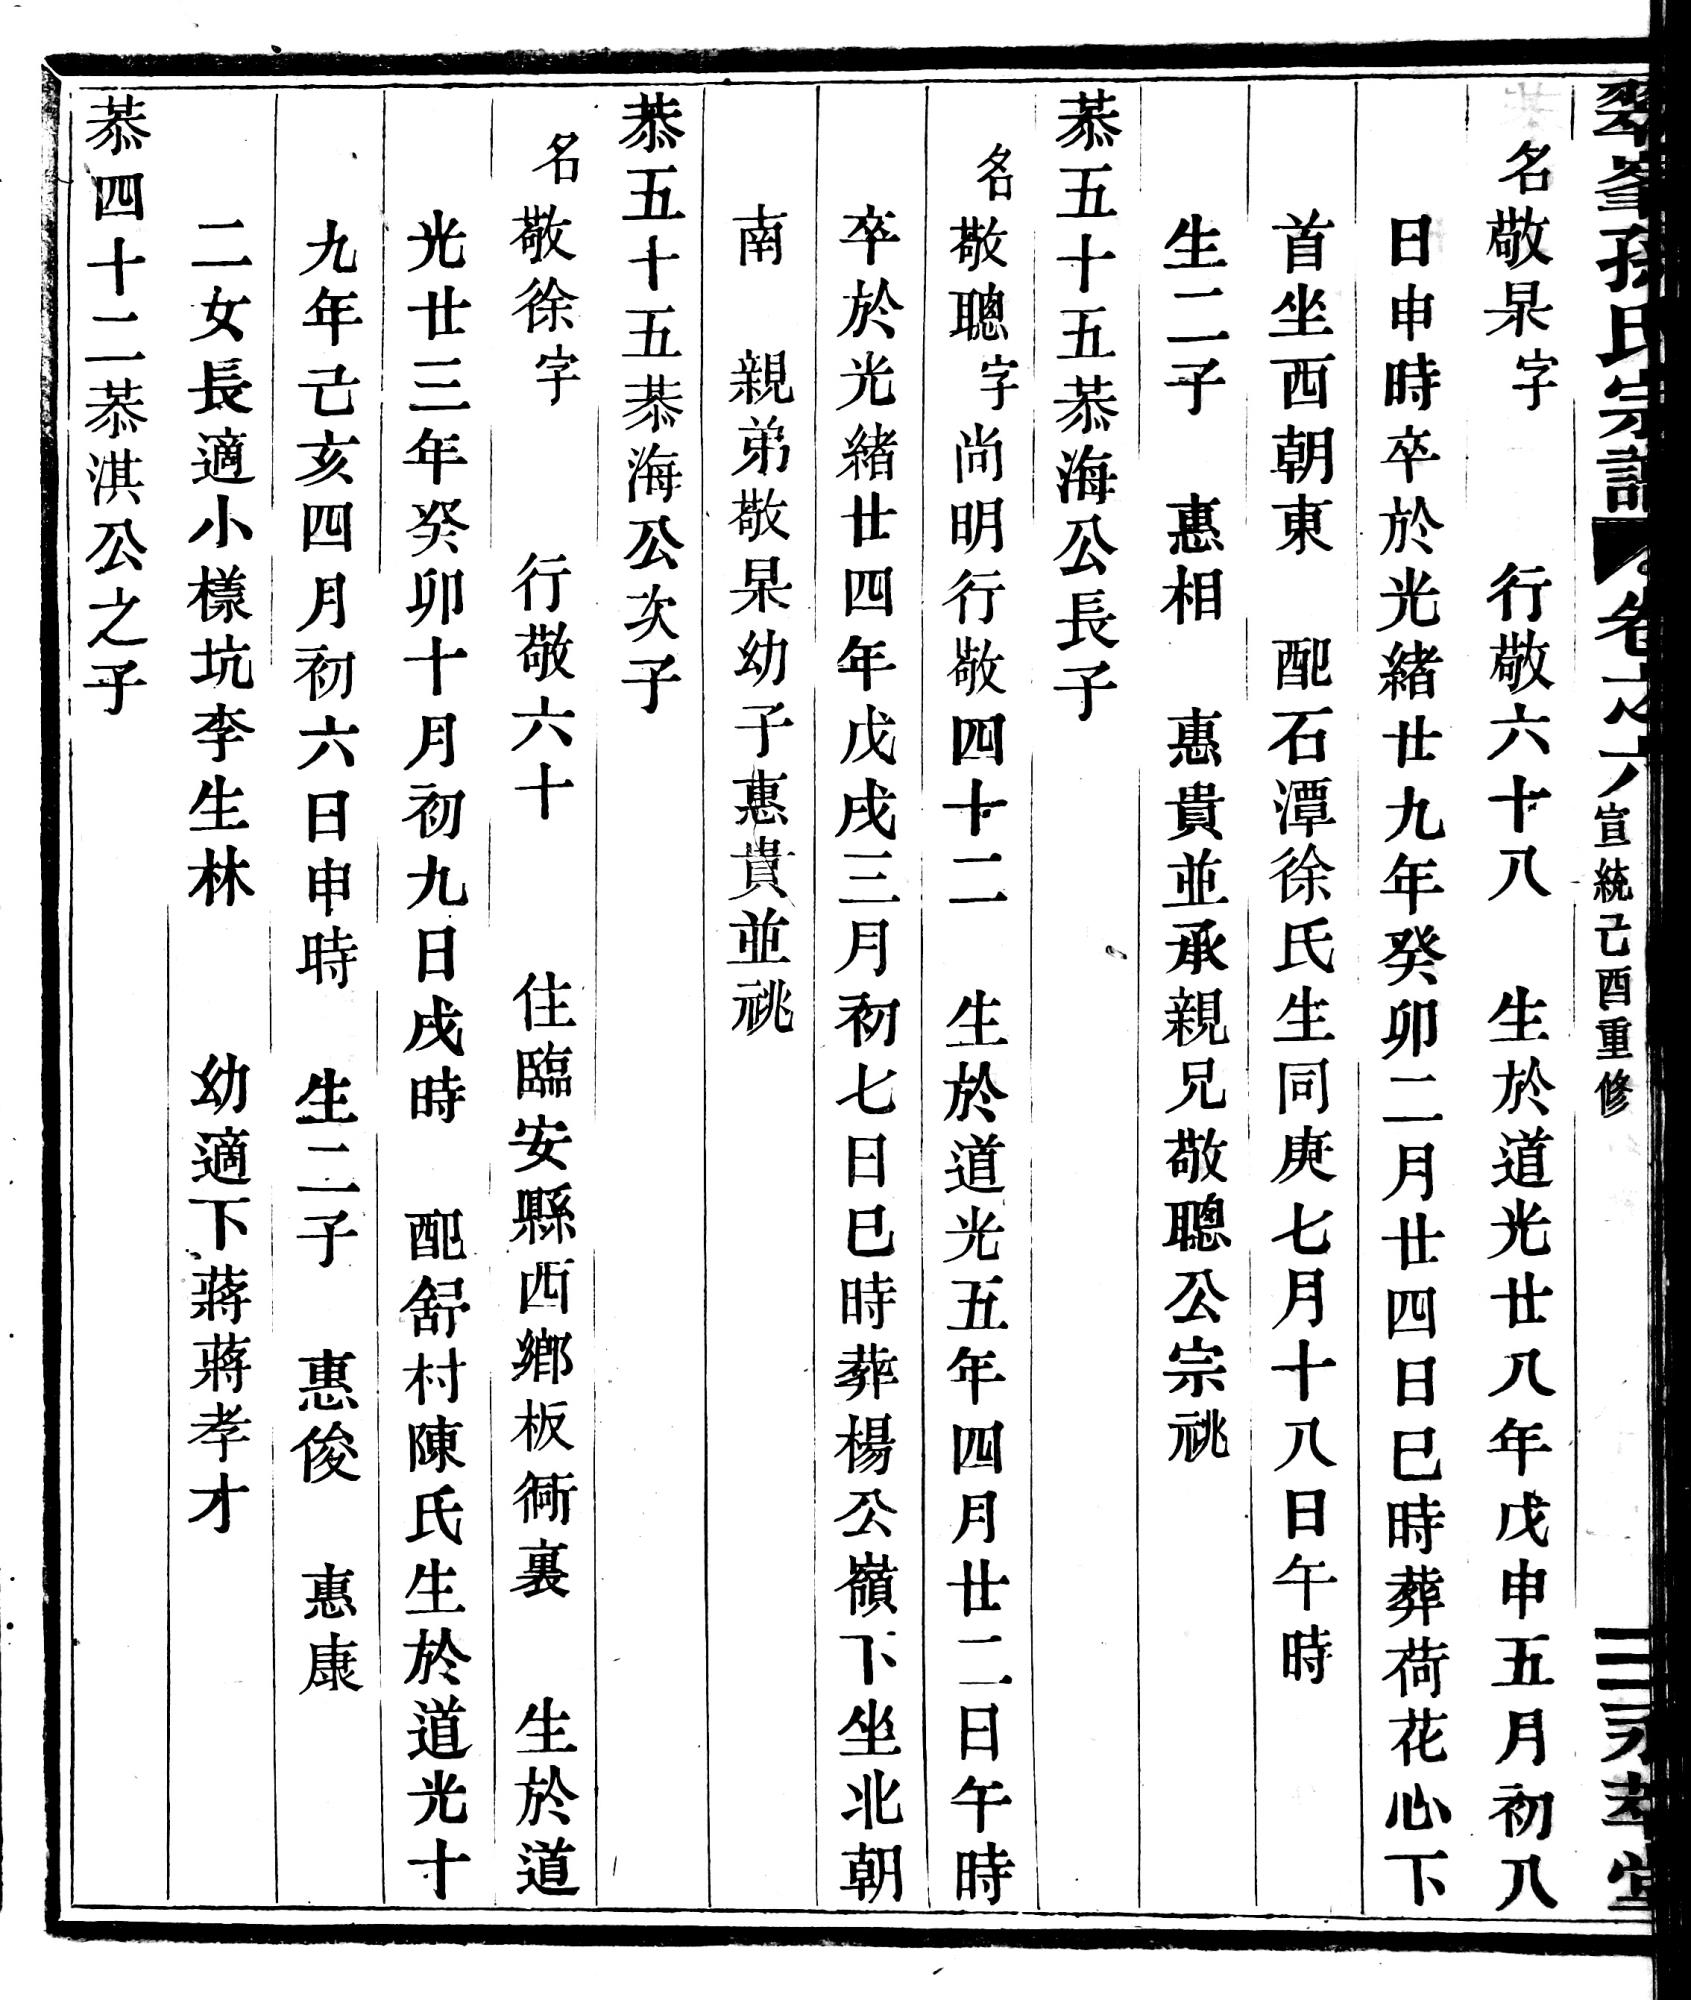 翠峯孫氏宗譜 卷之六 宣統己酉重修 永萃堂
名敬杲字 行敬六十八 生於道光廿八年戊申五月初八
日申時卒於光緒廿九年癸卯二月廿四日巳時葬荷花心下
首坐西朝東 配石潭徐氏生同庚七月十八日午時
生二子 惠相 惠貴並承親兄敬聰公宗祧
恭五十五恭海公長子
名敬聰字尚明行敬四十二 生於道光五年四月廿二日午時
卒於光緒廿四年戊戌三月初七日巳時葬楊公嶺下坐北朝
南 親弟敬杲幼子惠貴並祧
恭五十五恭海公次子
名敬徐字 行敬六十 住臨安縣西鄉板衖裏 生於道
光廿三年癸卯十月初九日戌時 配舒村陳氏生於道光十
九年己亥四月初六日申時 生二子 惠俊 惠康
二女長適小樣坑李生林 幼適下蔣蔣孝才
恭四十二恭淇公之子